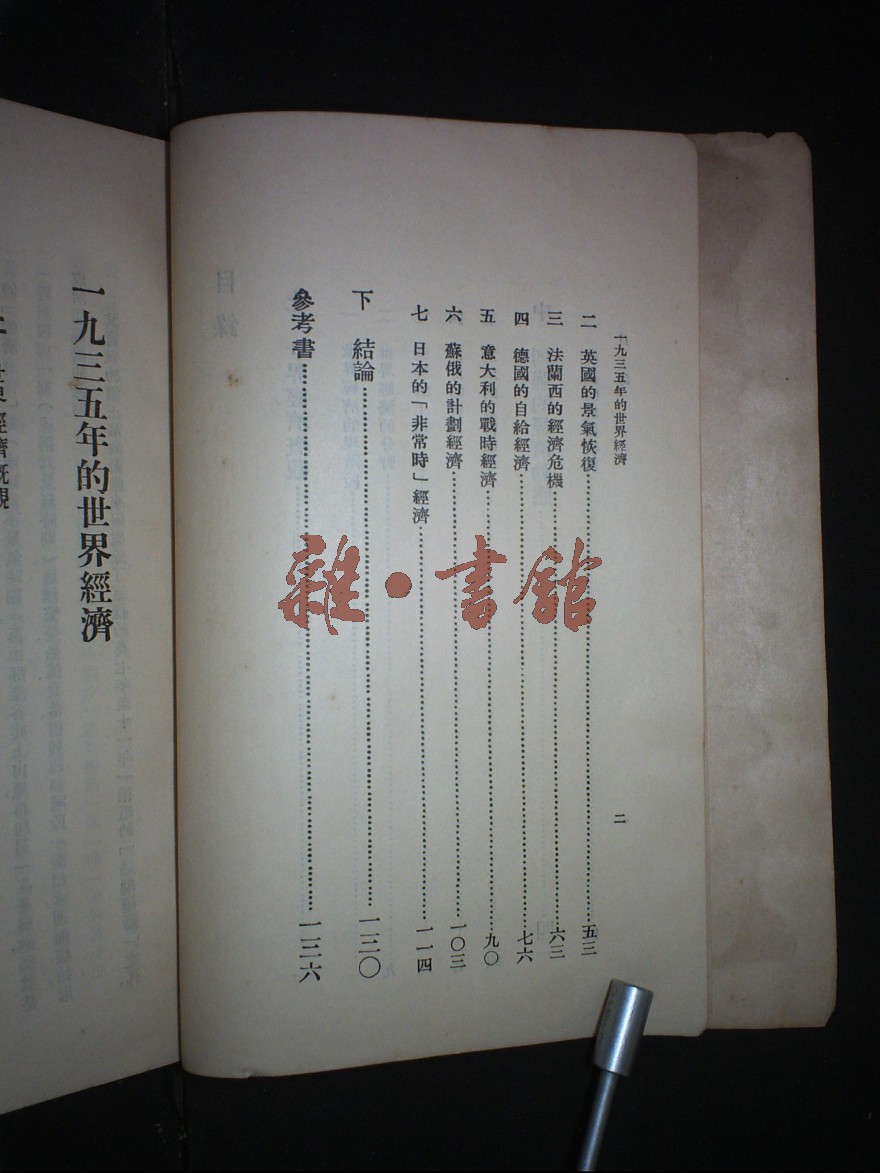 一九三五年的世界經濟
二
二 英國的景氣恢復……五三
三 法蘭西的經濟危機……六三
四 德國的自給經濟……七六
五 意大利的戰時經濟……九〇
六 蘇俄的計劃經濟……一〇三
七 日本的「非常時」經濟……一一四
下 結論……一三〇
參考書……一三六
一九三五年的世界經濟
世界經濟概觀
雜·書館